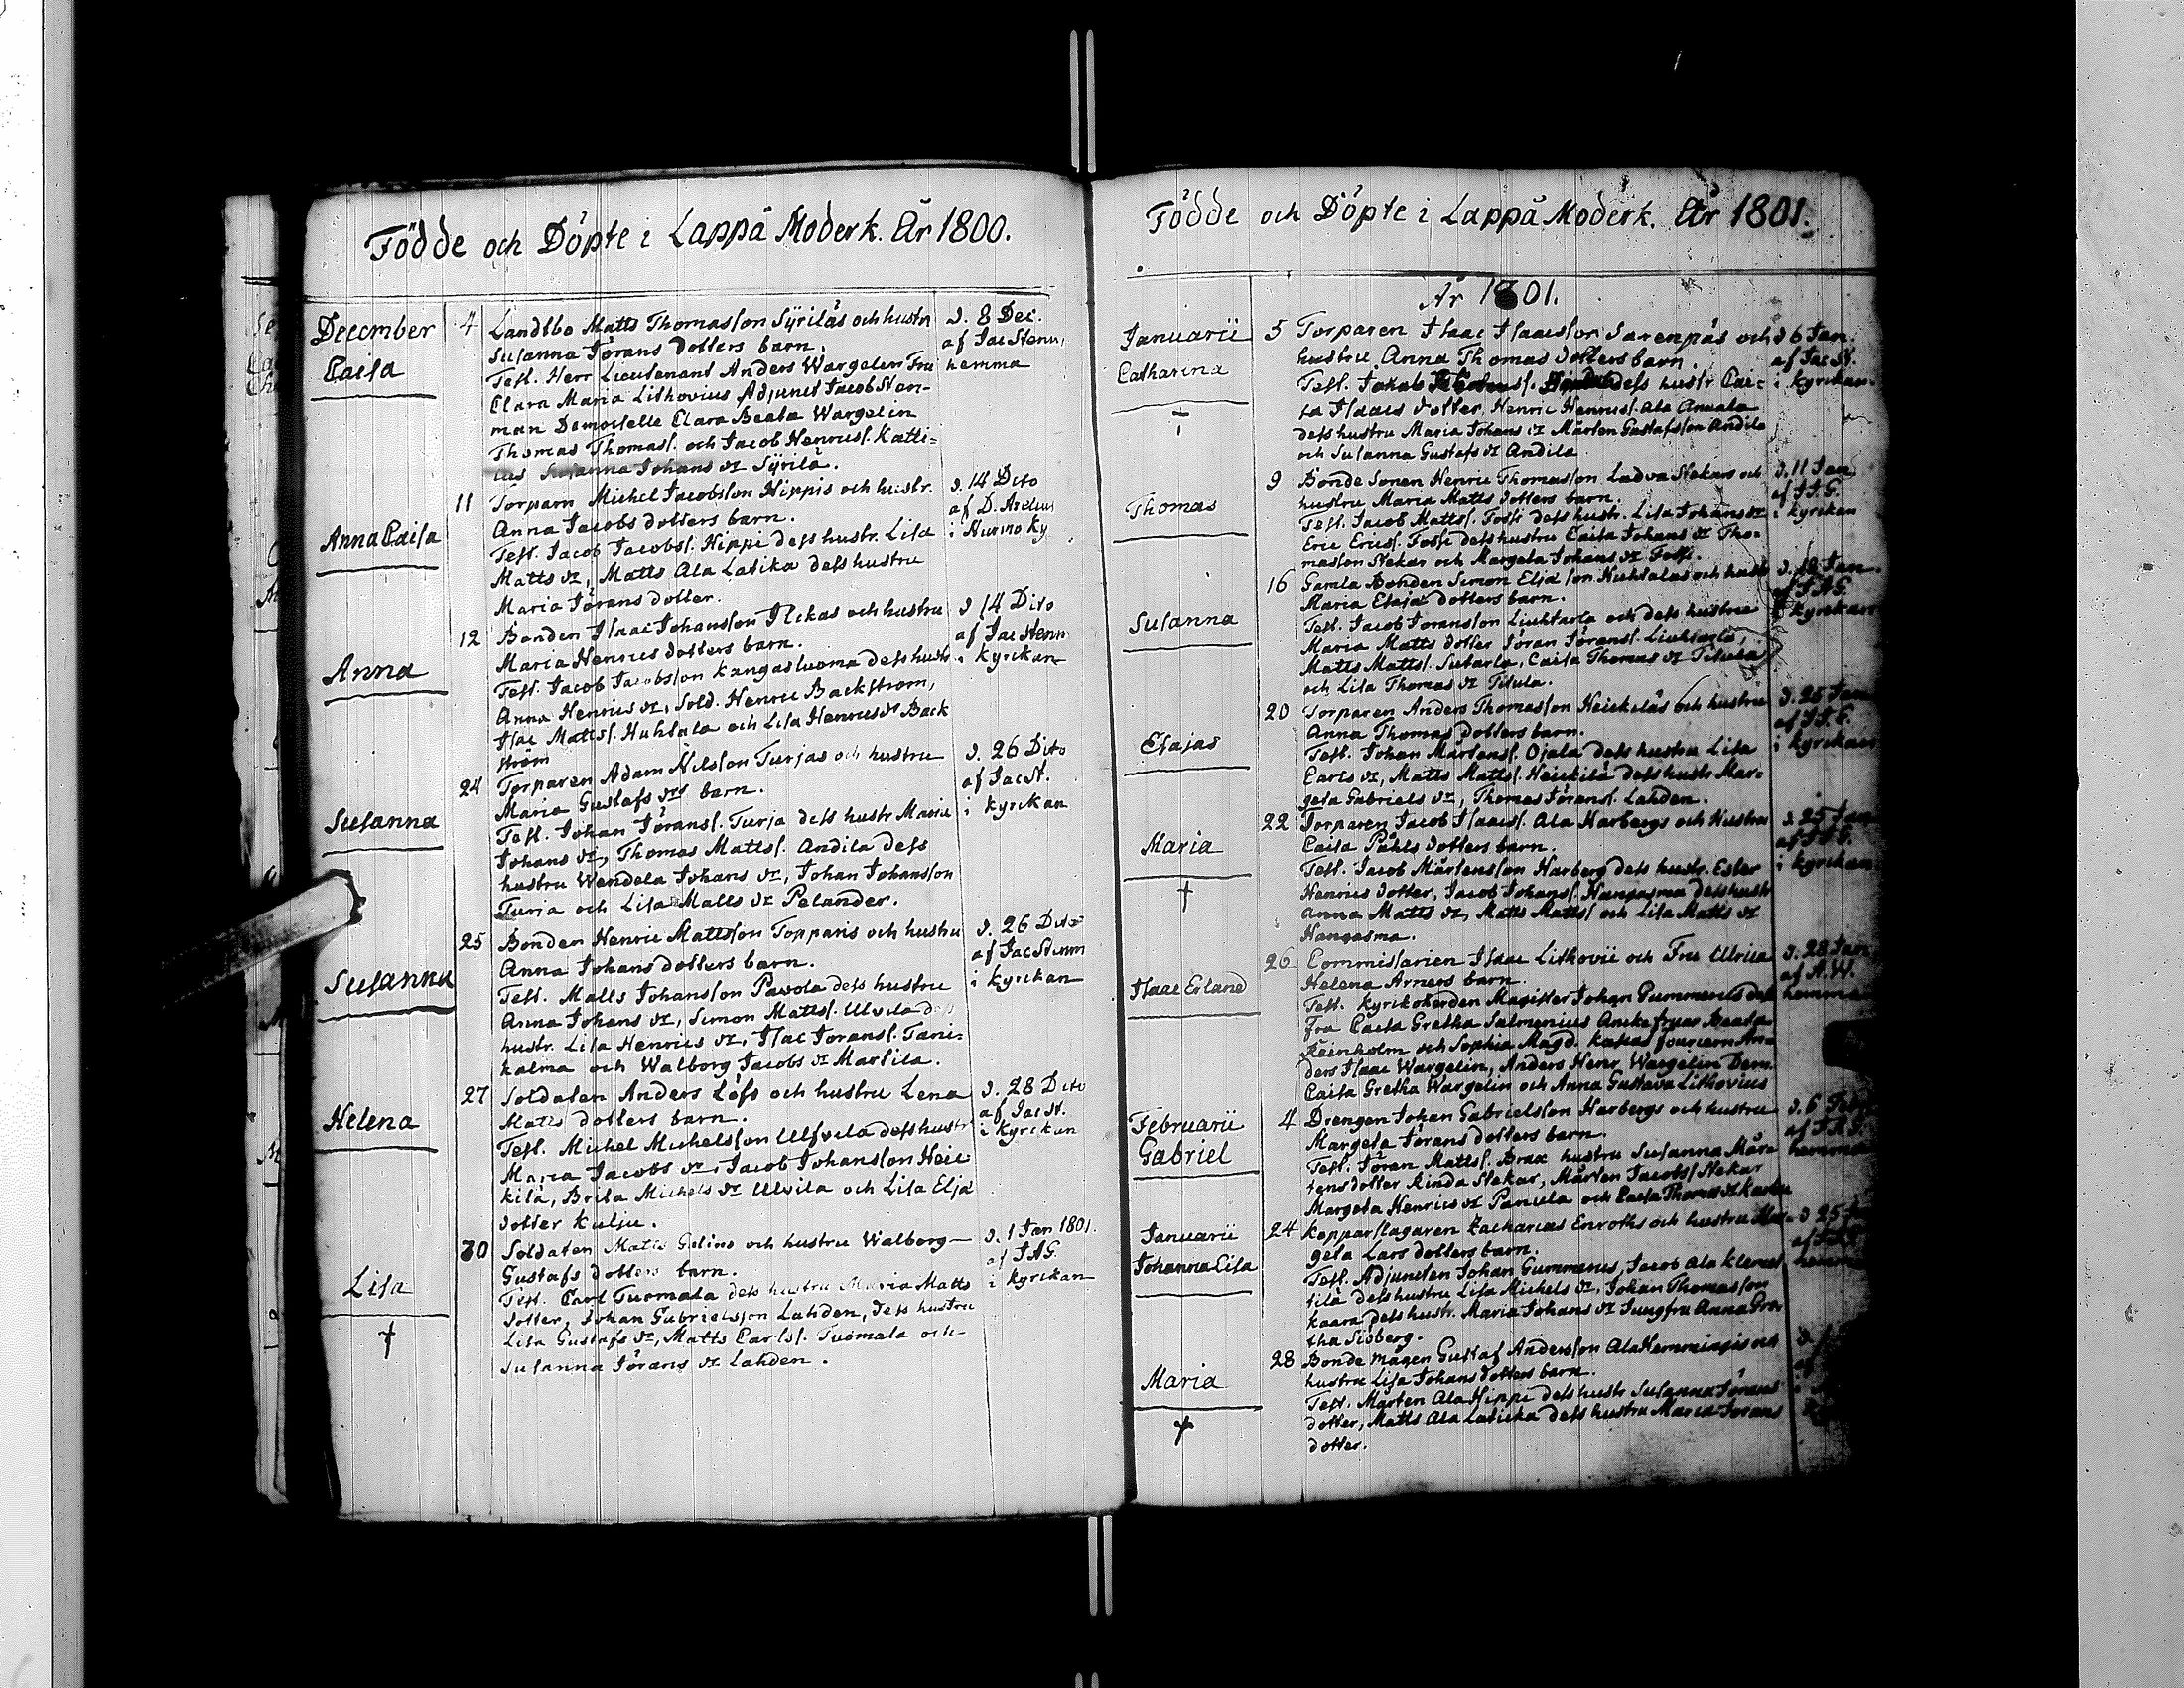 Födde och Döpte i Lappå Moderk. År 1800.
December
Caisa
4 Landtbo Matts Thomasson Syriläs och hustru
Susanna Jörans dotters barn.
Test. Herr Lieutenant Anders Wargelin Fru
Clara Maria Lithovius Adjunct Jacob Sten-
man Demoiselle Clara Beata Wargelin
Thomas Thomass. och Jacob Henricss. Katti-
lus Susanna Johans dr Syrilä.
d. 8 Dec.
af Jac Stenm,
hemma
Anna Caisa
11 Torparn Michel Jacobsson Hippis och hustr.
Anna Jacobs dotters barn.
Test. Jacob Jacobss. Hippi dess hustr. Lisa
Matts dr, Matts Ala Latika dess hustru
Maria Jörans dotter.
d. 14 Dito
af D.
i Kurno Ky
Anna
12 Bonden Isaac Johansson Ilckas och hustru
Maria Henrics dotters barn.
Test. Jacob Jacobsson Kangasluoma dess hustr
Anna Henrics dr, Sold. Henric Backström,
Isac Matts. Huhtala och Lisa Henrics dr Back
ström
d 14 Dito
af Jac Stenm
i Kyrckan
Susanna
24 Torparen Adam Nilsson Turjas och hustru
Maria Gustafs drs barn.
Test. Johan Jöranss. Turja dess hustr Maria
Johans dr, Thomas Mattss. Andila dess
hustru Wendela Johans dr, Johan Johansson
Turja och Lisa Matts dr Pelander.
d. 26 Dito
af Jac St.
i kyrckan
Susanna
25 Bonden Henric Mattsson Topparis och hustru
Anna Johans dotters barn.
Test. Matts Johansson Pavola dess hustru
Anna Johans dr, Simon Mattss. Ulvila
hustr. Lisa Henrics dr, Isac Joranss. Tani-
kalma och Walborg Jacobs dr Martila.
d. 26 Dito
af Jac Stenm
i kyrckan
Helena
27 Soldaten Anders Löfs och hustru Lena
Matts dotters barn.
Test. Michel Michelsson Ulfvila dess hustr
Maria Jacobs dr, Jacob Johansson Heic
kilä, Brita Michels dr Ulvila och Lisa Eljä
dotter Kulju.
d. 28 Dito
af Jac St.
i kyrckan
Lisa
†
30 Soldaten Matts Gelins och hustru Walborg
Gustafs dotters barn.
Test. Carl Tuomala dess hustru Maria Matts
dotter, Johan Gabrielsson Lahden, dess hustru
Lisa Gustafs dr, Matts Carlss. Tuomala och
Susanna Jörans dr Lahden.
d. 1 Jan 1801.
af J A G.
i kyrckan
Födde och Döpte i Lappå Moderk. År 1801.
År 1801.
Januarii
Catharina
†
5 Torparen Isaac Isaacsson Sarenpäs och
hustru Anna Thomas dotters barn.
Test. Jakob dess hustr Cai-
sa Isaacs dotter, Henric Henricss. Ala Annala
dess hustru Maria Johans dr Mårten Gustafsson Andila
och Susanna Gustafs dr Andila
d 6 Jan.
af Jac St.
i kyrckan
Thomas
9 Bonde Sonen Henric Thomasson Ladva Stekars och
hustru Maria Matts dotters barn.
Test. Jacob Mattss. Fossi dess hustr. Lisa Johans dr
Eric Ericss. Fossi dess hustru Caisa Johans dr Tho-
masson Stekar och Margeta Johans dr Fossi.
d. 11 Jan.
af J A G.
i kyrckan
Susanna
16 Gamla Bonden Simon Eljässon Huhtalas och hustr
Maria Elajä dotters barn.
Test. Jacob Joransson Liuhtarla och dess hustru
Maria Matts dotter Jöran Jöranss. Liuhtarla,
Matts Mattss. Sutarla, Caisa Thomas dr Titula
och Lisa Thomas dr Titula.
d. 18 Jan.
af J A G.
kyrckan
Esajas
20 Torparen Anders Thomasson Heickiläs och hustru
Anna Thomas dotters barn.
Test. Johan Mårtenss. Ojala dess hustru Lisa
Carls dr, Matts Mattss. Heickilä dess hustr Mar-
geta Gabriels dr, Thomas Jöranss. Lahden.
d. 25 Jan
af J A G.
i kyrckan
Maria
†
22 Torparen Jacob Isaacss. Ala Harbergs och Hustru
Caisa Påhls dotters barn.
Test. Jacob Mårtensson Harberg dess hustr. Ester
Henrics dotter, Jacob Johanss. Hangasma dess hustr
Anna Matts dr, Matts Mattss och Lisa Matts dr
Hangasma.
d. 25 Jan
af J A G.
i kyrckan
Isaac Erland
26 Commissarien Isaac Lithovii och Fru Ulrica
Helena Arners barn.
Test. Kyrckoherden Magister Johan Gummerus dess
fru Caisa Gretha Salmenius Anckefruar Beata
Reinholm och Sophia Magd. fouriern An-
ders Isaac Wargelin, Anders Henr. Wargelin Dem.
Caisa Gretha Wargelin och Anna Gustava Lithovius
d. 28 Jan
af A. W.
hemma
Februarii
Gabriel
4 Drengen Johan Gabrielsson Harbergs och hustru
Margeta Jörans dotters barn.
Test. Jöran Mattss. Brax hustru Susanna Mår-
tens dotter Rinda Stekar, Mårten Jacobss Stekar
Margeta Henrics dr Panula och Caisa Thomas dr
d. 6 Febr
af J A G.
hemma
Januarii
Johanna Lisa
24 Kopparslagaren Zacharias Enroths och hustru Mar-
geta Lars dotters barn.
Test. Adjuncten Johan Gummerus, Jacob Ala Klemet
tilä dess hustru Lisa Michels dr, Johan Thomasson
Kaara dess hustr. Maria Johans dr Jungfru Anna Gre-
tha Siöberg.
d 25
af
hemma
Maria
†
28 Bonde mågen Gustaf Andersson Ala Hemmingis och
hustru Lisa Johans dotters barn.
Test. Mårten Ala Hippi dess hustr Susanna Jörans
dotter, Matts Ala Laticka dess hustru Maria Jorans
dotter.